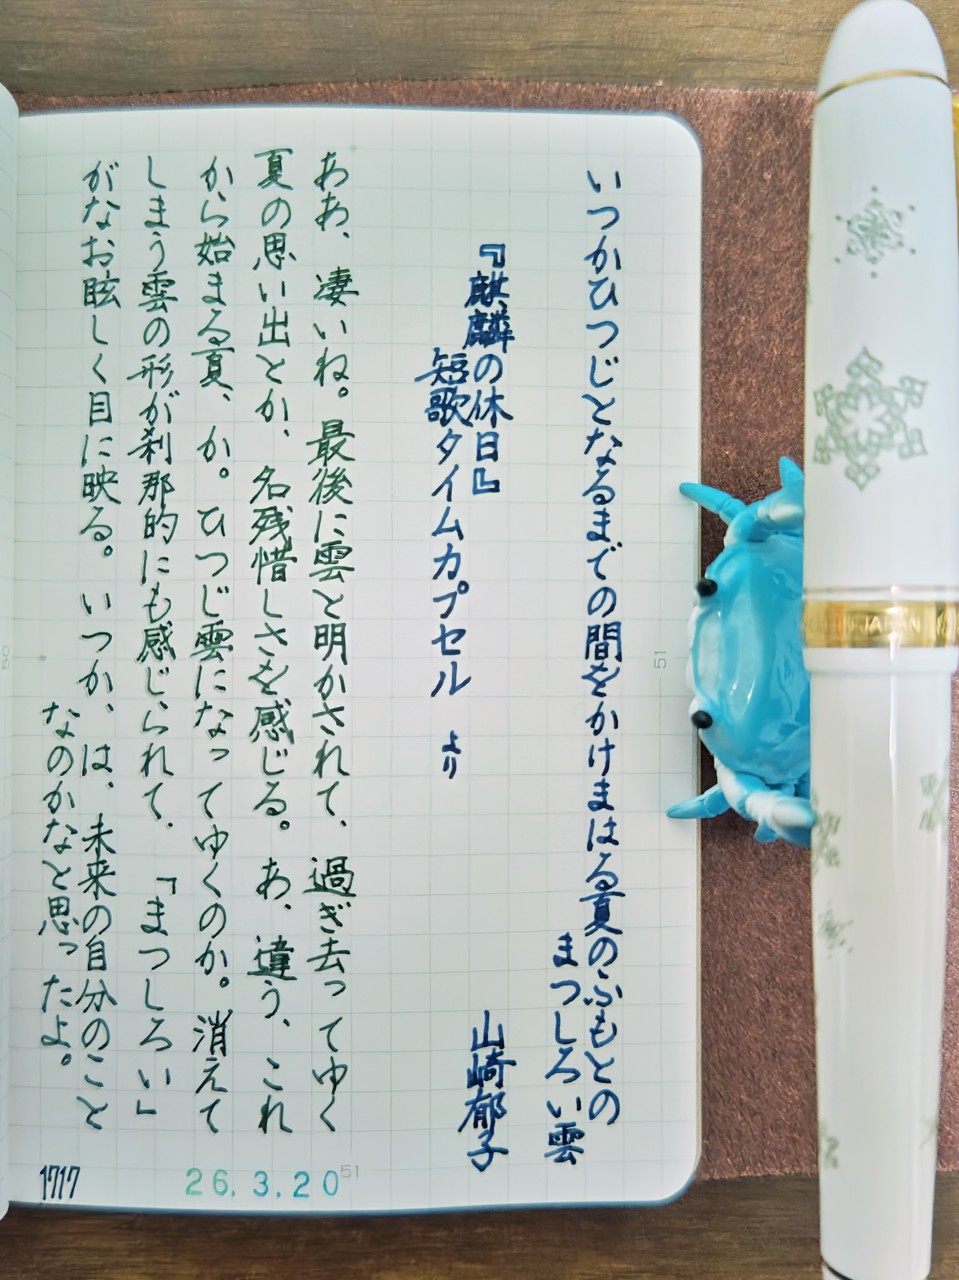 いつかひつじとなるまでの間をかけまはる夏のふもとの
まつしろい雲
『麒麟の休日』
山崎郁子
短歌タイムカプセル より
ああ、凄いね。最後に雲と明かされて、過ぎ去ってゆく
夏の思い出とか、名残惜しさを感じる。あ、違う、これ
から始まる夏、か。ひつじ雲になってゆくのか。消えて
しまう雲の形が刹那的にも感じられて、「まつしろい」
がなお眩しく目に映る。いつか、は、未来の自分のこと
なのかなと思ったよ。
1717
26.3.20
51
51
50
JAPAN